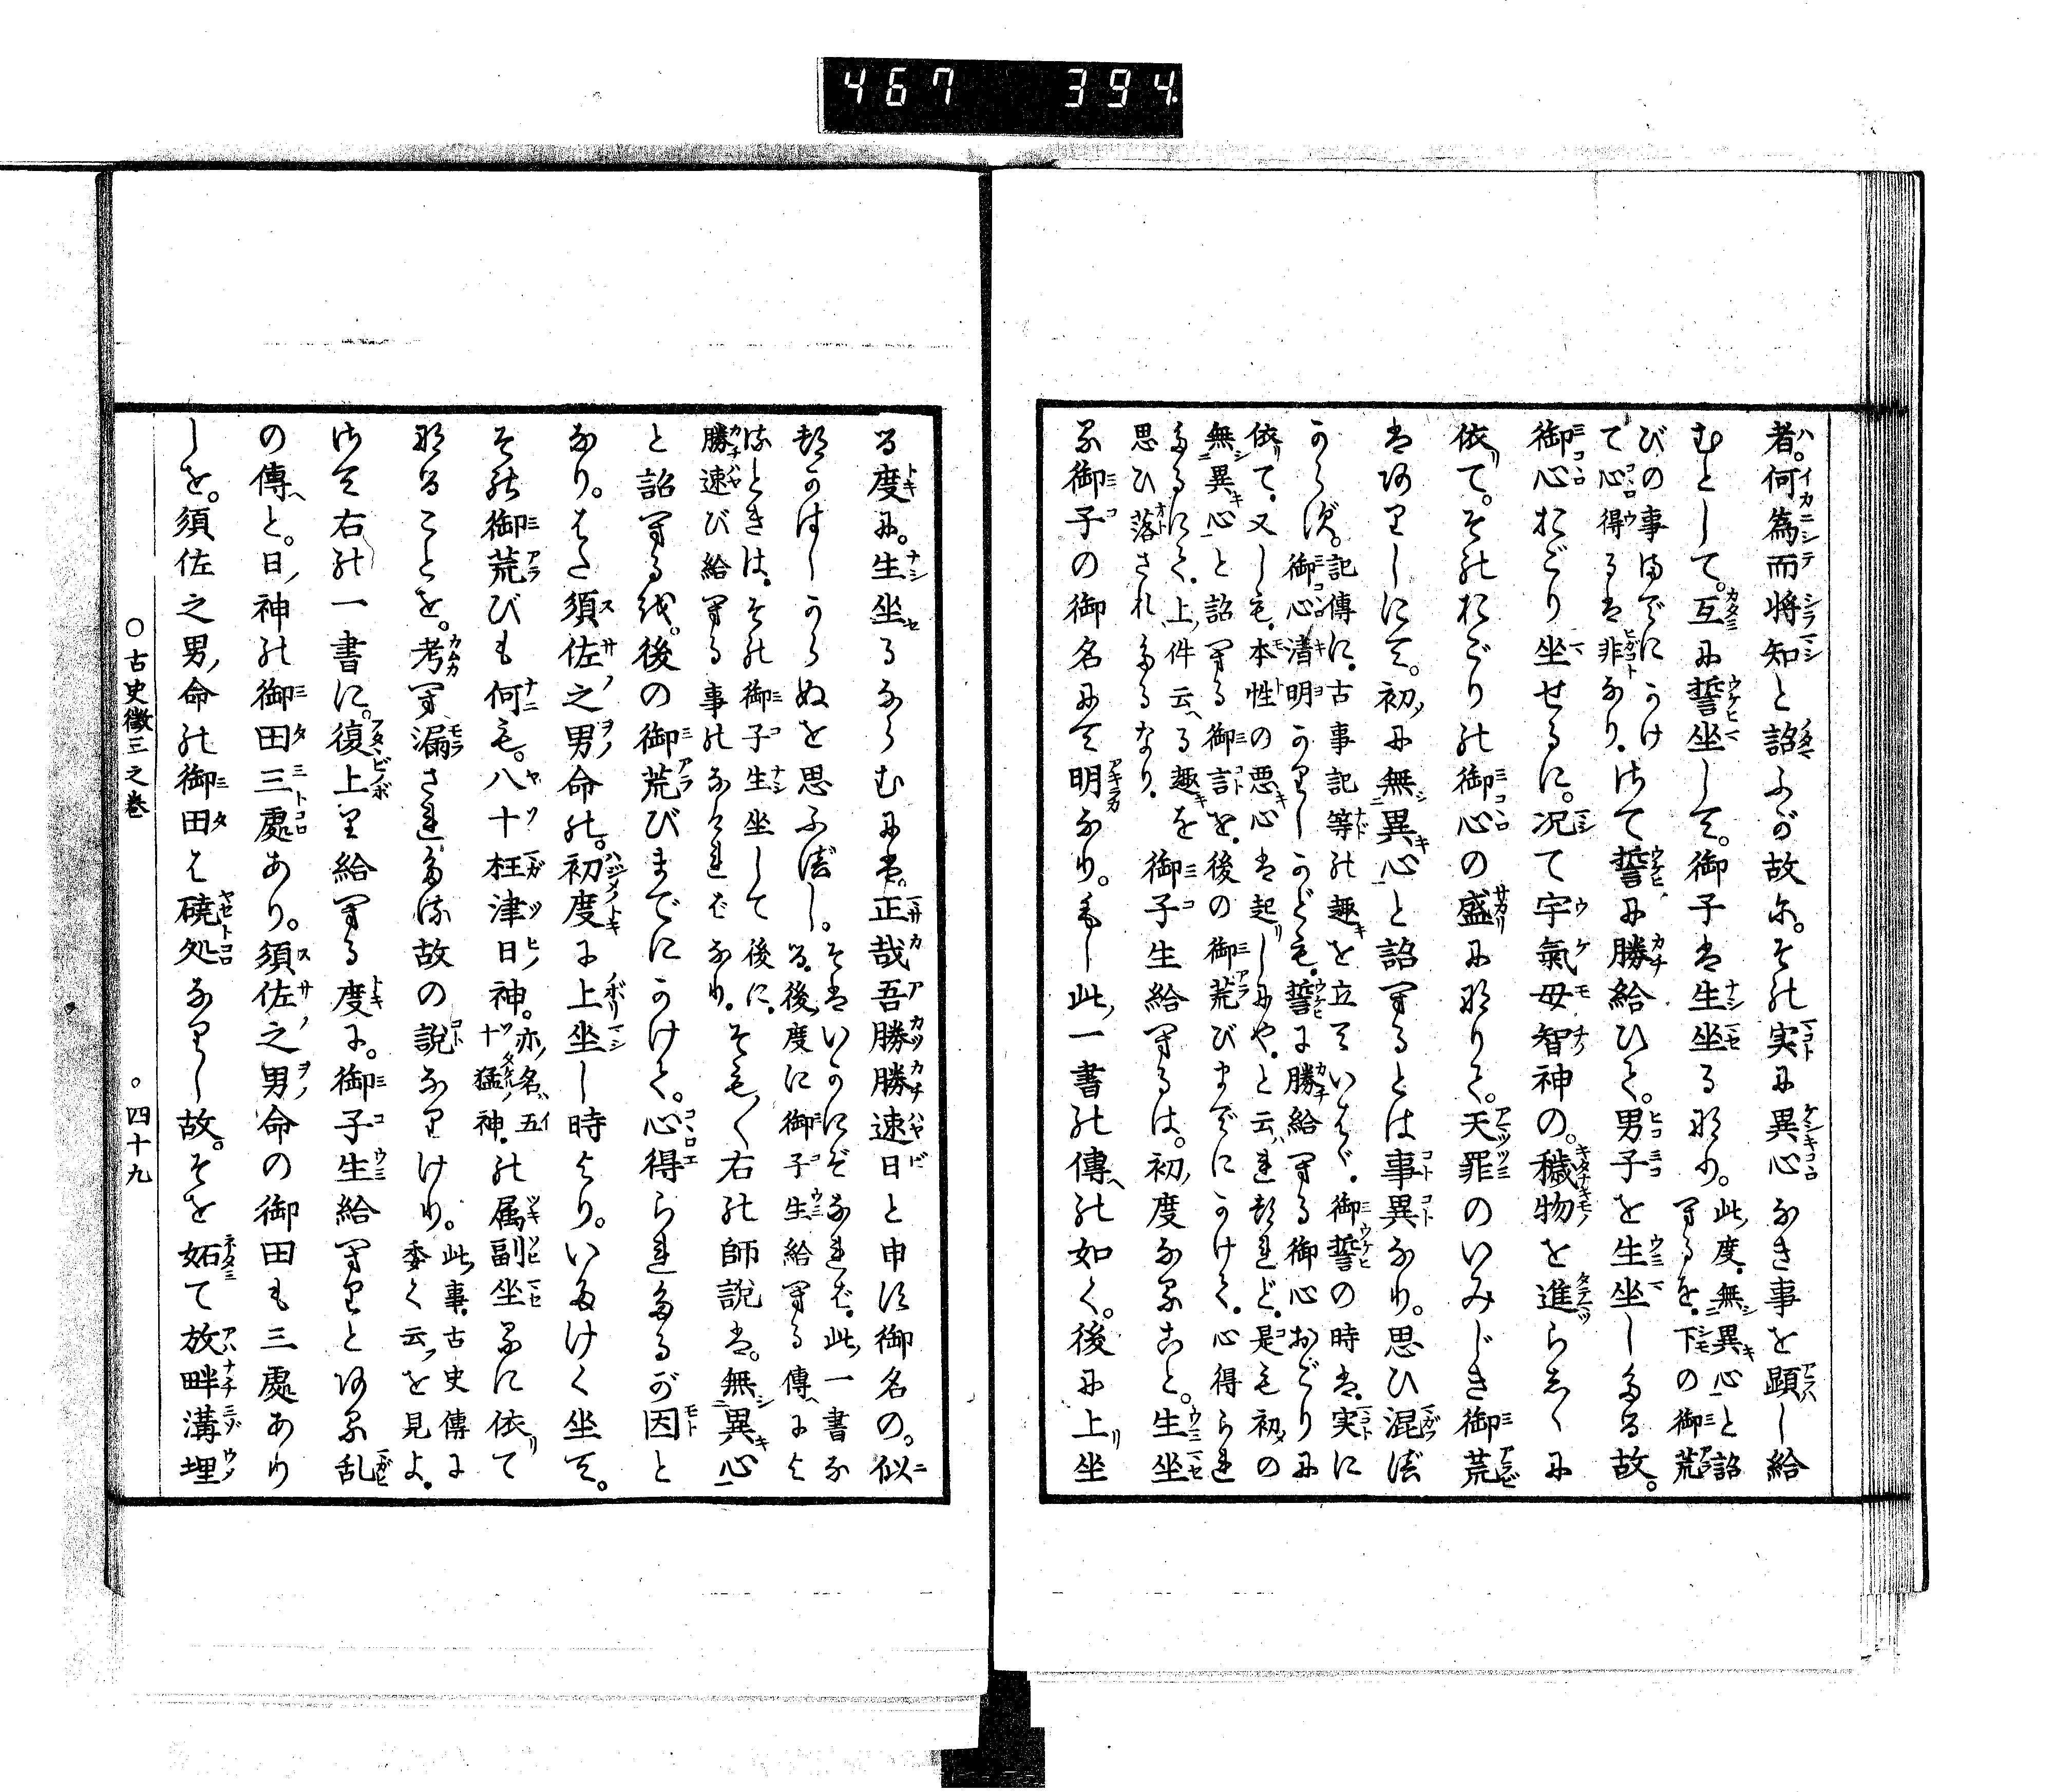 467 394
者。何為而将知と詔ふが故に。その実に異心なき事を顕し給
むとして。互に誓坐して。御子は生坐るなり。此度。無異心と詔
へるを。下の御荒
びの事までにかけ
て心得るは非なり。さて誓に勝給ひて。男子を生坐しつる故。
御心おごり坐せるに。况て宇氣母智神の。穢物を進らしゝに
依て。そのおごりの御心の盛になりて。天罪のいみじき御荒
はありしにて。初に無異心と詔へるとは事異なり。思ひ混ず
からず。記傳に。古事記等の趣を立ていはゞ。御誓の時は。実に
御心清明かりしかども。誓に勝給へる御心おごりに
依て。又しも。本性の悪心は起りしにや。と云れつれど。是も初の
無異心と詔へる御言を。後の御荒びまでにかけて。心得られ
たるにて。上件云る趣を
思ひ落されたるなり。御子生給へるは。初度なること。生坐
る御子の御名にて明なり。もし此一書の傳の如く。後に上坐
る度に。生坐るならむには。正哉吾勝勝速日と申す御名の。似
つかはしからぬを思ふべし。そはいかにぞなれば。此一書な
る。後度に御子生給へる傳によ
るときは。その御子生坐して後に。
勝速び給へる事のなければなり。そも〳〵右の師説は。無異心
と詔へるを。後の御荒びまでにかけて。心得られたるが因と
なり。また須佐之男命の。初度に上坐し時より。いたけく坐て。
その御荒びも何も。八十枉津日神。亦名五
十猛神の属副坐るに依て
なることを。考へ漏されたる故の説なりけり。此事。古史傳に
委く云を見よ。
さて右の一書に。復上り給へる度に。御子生給へりとある乱
の傳と。日神の御田三處あり。須佐之男命の御田も三處あり
しを。須佐之男命の御田は磽処なりし故。そを妬て放畔溝埋
○古史徴三之巻
○四十九